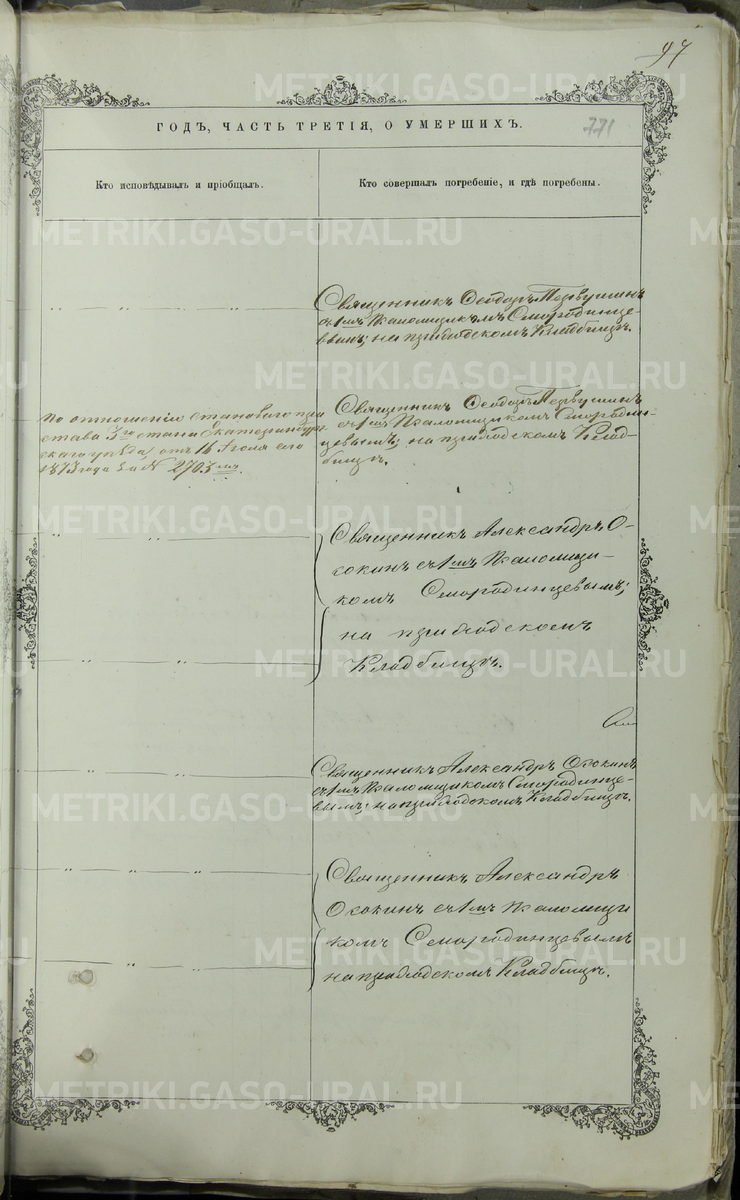 97
ГОДЪ, ЧАСТЬ ТРЕТІЯ, О УМЕРШИХЪ.
771
Кто исповѣдывалъ и пріобщалъ.
Кто совершалъ погребеніе, и гдѣ погребены.
Священникъ Ѳеодоръ Первушинъ
съ 1мъ Псаломщикомъ Смородинце-
вымъ; на приходскомъ Кладбищѣ.
По отношенію Становаго при
става 3го стана Екатеринбург
скаго уѣзда, отъ 16 Іюля сего
1873 года за N 2703мъ
Священникъ Ѳеодоръ Первушинъ
съ 1мъ Псаломщикомъ Смородин-
цевымъ; на приходскомъ Клад-
бищѣ.
Священникъ Александръ О-
сокинъ съ 1мъ Псаломщи-
комъ Смородинцевымъ;
на приходскомъ
Кладбищѣ.
Священникъ Александръ Осокинъ
съ 1мъ Псаломщикомъ Смородинце-
вымъ; на приходскомъ Кладбищѣ.
Священникъ Александръ
Осокинъ съ 1мъ Псаломщи
комъ Смородинцевымъ
на приходскомъ Кладбищѣ.
METRIKI.GASO-URAL.RU